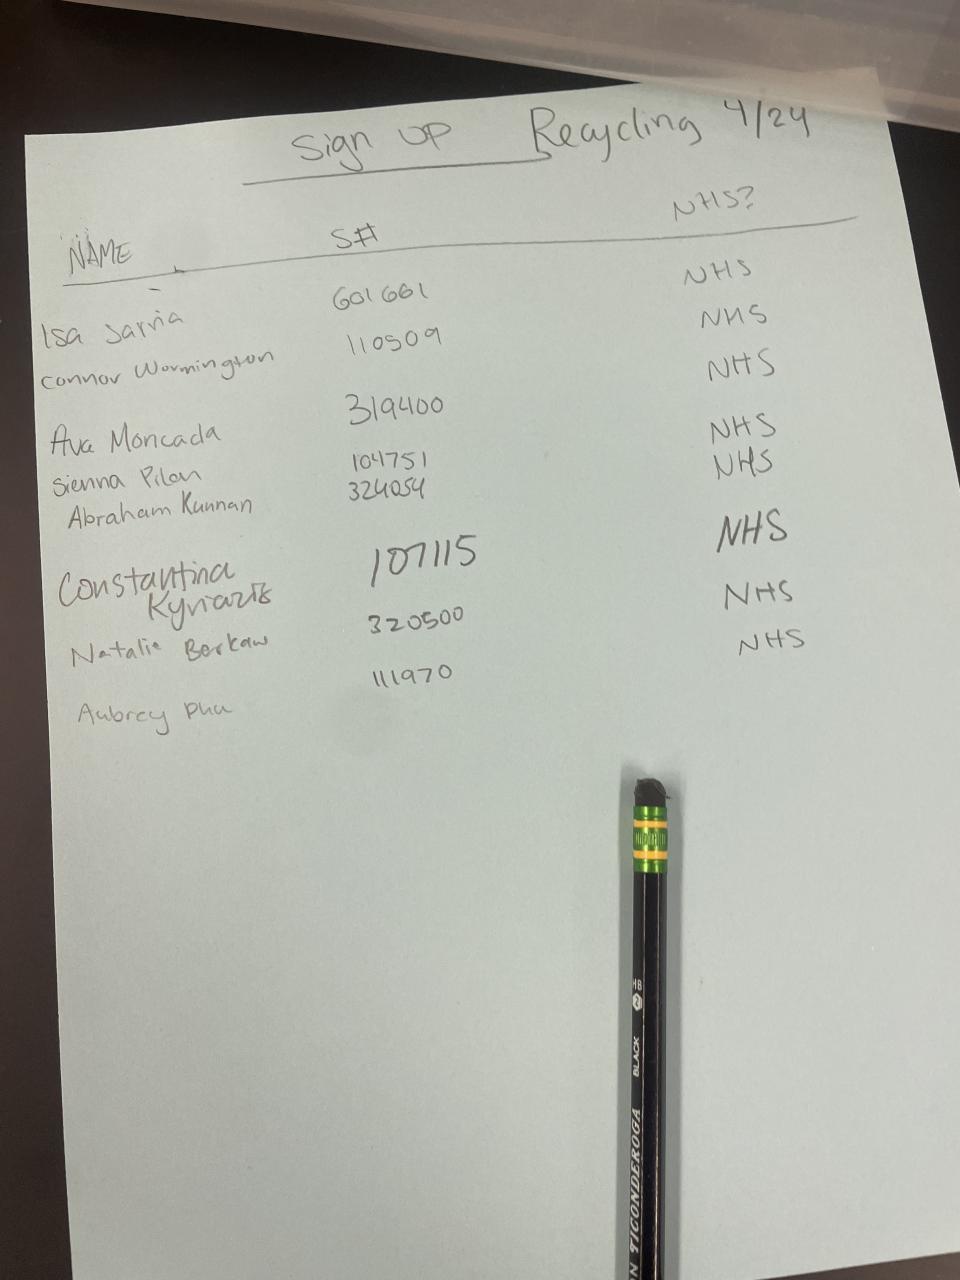 Sign UP Recycling 4/24
NAME S# NHS?
Isa Sarria 601661 NHS
Connor Wormington 110509 NHS
Ava Moncada 319400 NHS
Sienna Pilon 104751 NHS
Abraham Kunnan 324054 NHS
Constantina 107115 NHS
Kyriazis
Natalie Berkaw 320500 NHS
Aubrey Phu 111970 NHS
HB 2 BLACK N TICONDEROGA